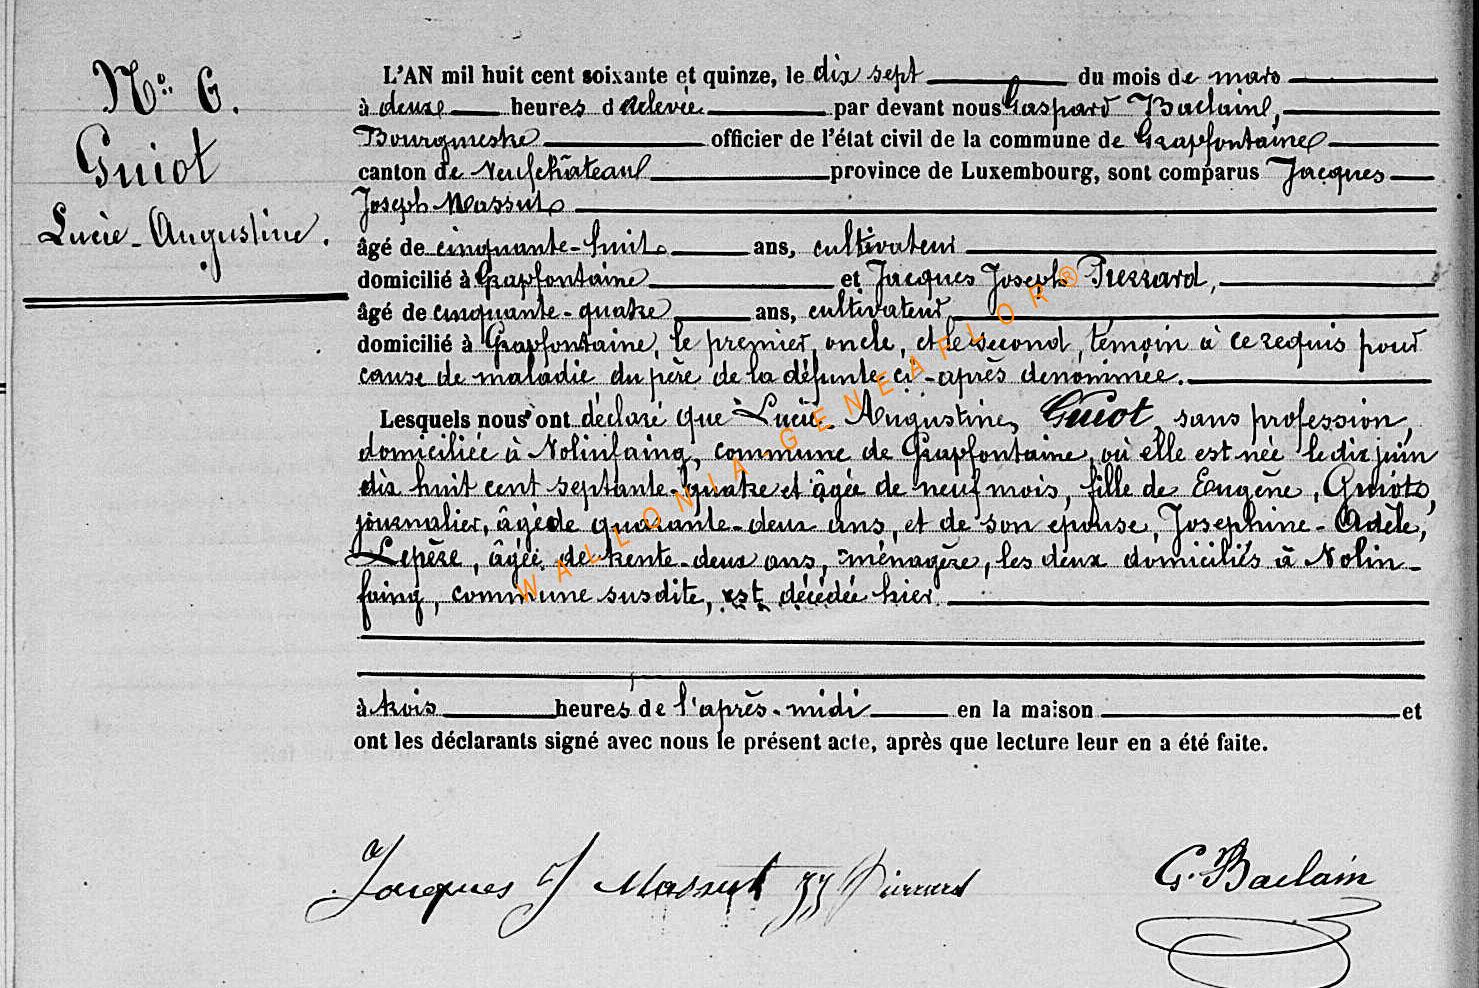 N° 6.
Guiot
Lucie-Augustine.
L'AN mil huit cent soixante et quinze, le dix sept du mois de mars
à deux heures d relevée par devant nous Gaspard Baclain,
Bourgmestre officier de l'état civil de la commune de Grapfontaine
canton de Neufchâteau province de Luxembourg, sont comparus Jacques
Joseph Massut
âgé de cinquante-huit ans, cultivateur
domicilié à Grapfontaine et Jacques Joseph Pierrard,
âgé de cinquante-quatre ans, cultivateur
domicilié à Grapfontaine, le premier, oncle, et le second, témoin à ce requis pour
cause de maladie du père de la défunte ci-après dénommée.
Lesquels nous ont déclaré que Lucie Augustine, Guiot, sans profession,
domiciliée à Nolinfaing, commune de Grapfontaine, où elle est née le dix juin
dix huit cent septante-quatre et âgée de neuf mois, fille de Eugène, Guiot,
journalier, âgé de quarante-deux ans, et de son épouse, Josephine-Adèle,
Lepère, âgée de trente-deux ans, ménagère, les deux domiciliés à Nolin-
faing, commune susdite, est décédée hier
à trois heures de l'après-midi en la maison et
ont les déclarants signé avec nous le présent acte, après que lecture leur en a été faite.
Jacques J Massut JJ Pierrard
G. Baclain
WALLONIA-GENEAFLOR®